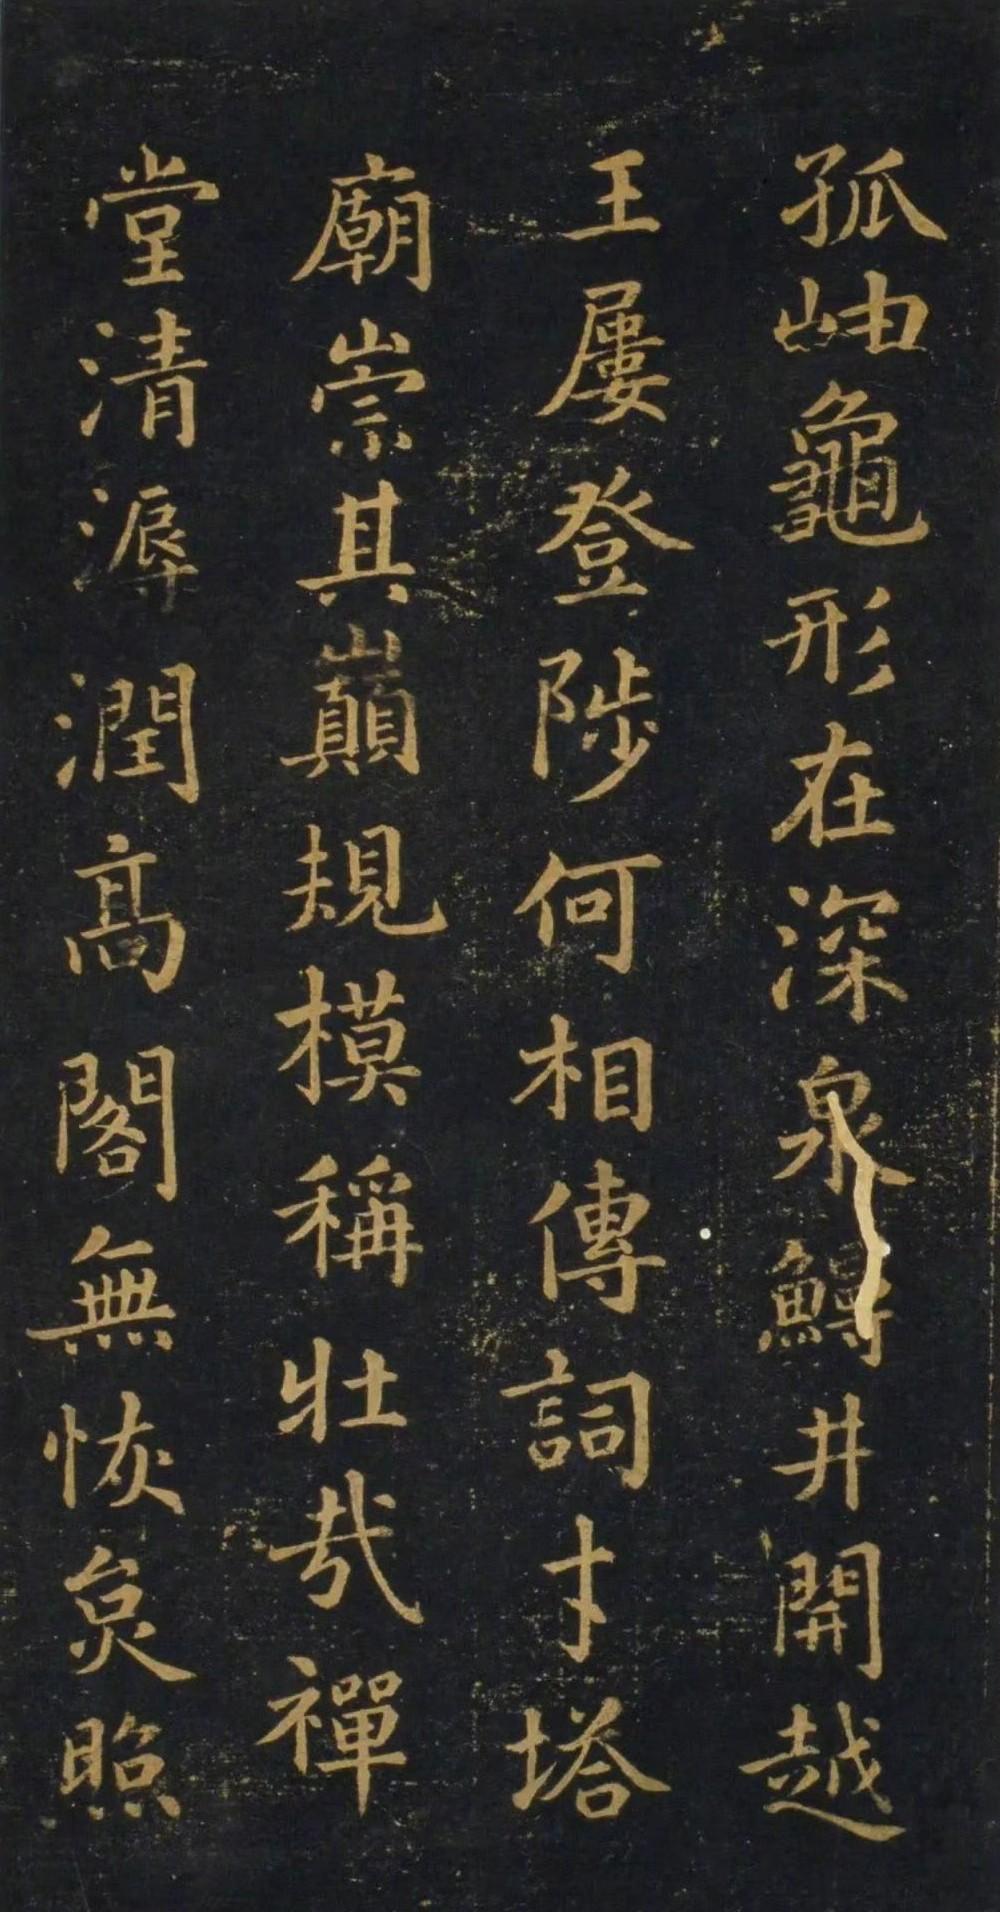 孤岫龜形在深泉鱘井開越
王屢登陟何相傳詞才塔
廟崇其巔規模稱壯哉禪
堂清溽潤高閣無恢炱照